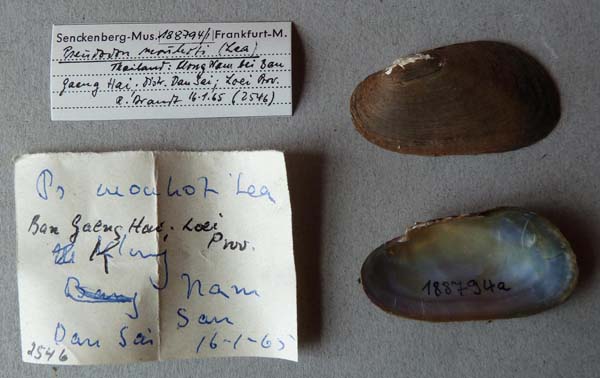 Senckenberg-Mus. 188794/1 Frankfurt-M.
Pseudodon mouhoti (Lea)
Thailand: Klong Nam bei Ban
Gaeng Hai, distr. Dan Sai, Loei Prov.
R. Brandt 16.1.65 (2546)
Ps. mouhoti Lea
Ban Gaeng Hai, Loei
Prov.
Klong
Nam
San
Dan Sai 16-1-65
2546
188794a